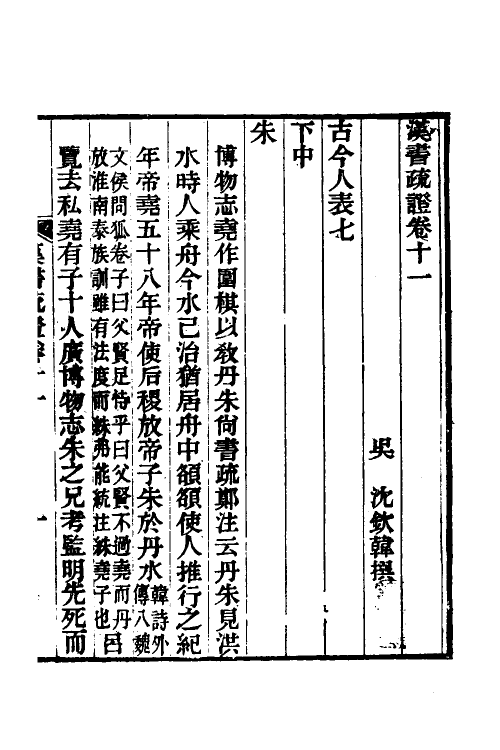 漢書疏證卷十一
吳 沈欽韓撰
古今人表七
下中
朱
博物志堯作圍棋以敎丹朱尙書疏鄭注云丹朱見洪
水時人乘舟今水已治猶居舟中頟頟使人推行之紀
年帝堯五十八年帝使后稷放帝子朱於丹水韓詩外傳八魏
文侯問狐卷子曰父賢足恃乎曰父賢不過堯而丹放淮南泰族訓雖有法度而絑弗能統注絑堯子也呂
覽去私堯有子十人廣博物志朱之兄考監明先死而
漢書疏證卷十一 一